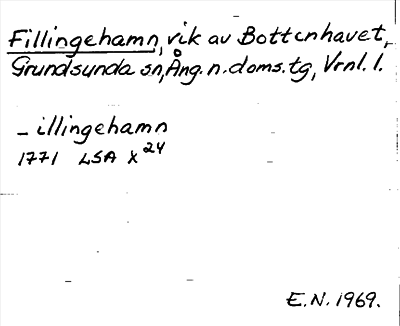 Fillingehamn, vik av Bottenhavet,
Grundsunda sn, Ång. n. doms. tg, Vrnl. l.
– illingehamn
1771 LSA X24
E.N. 1969.